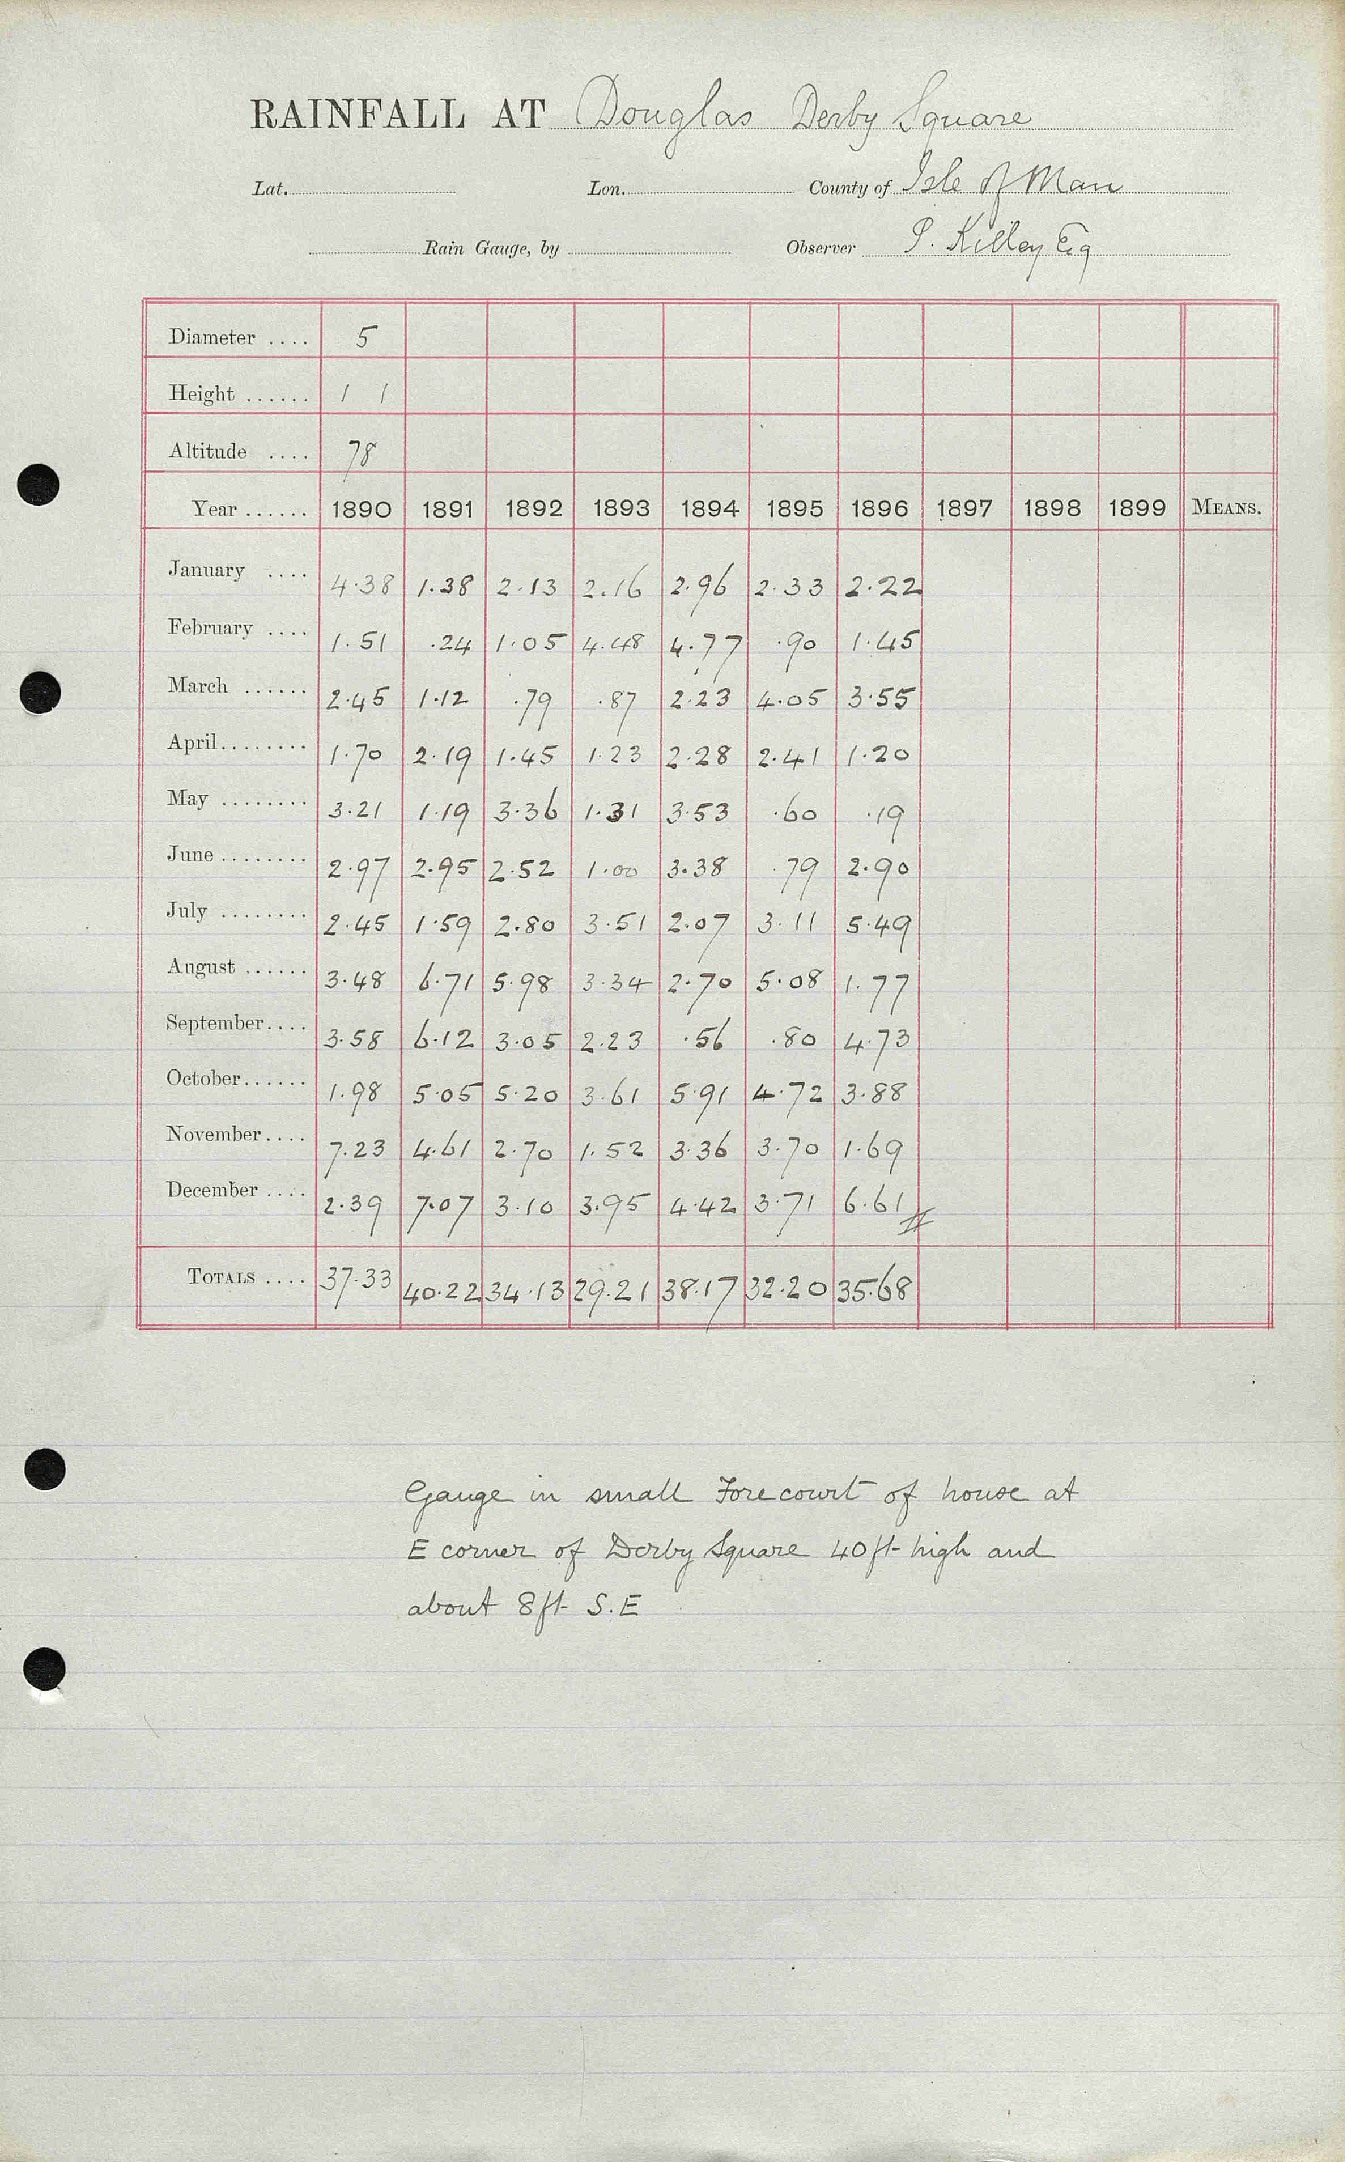 RAINFALL AT Douglas Derby Square
Lat. Lon. County of Isle of Man
Rain Gauge, by Observer P. Killey Esq
Diameter .... 5
Height ...... 1 1
Altitude .... 78
Year ...... 1890 1891 1892 1893 1894 1895 1896 1897 1898 1899 MEANS.
January .... 4.38 1.38 2.13 2.16 2.96 2.33 2.22
February .... 1.51 .24 1.05 4.48 4.77 .90 1.45
March ...... 2.45 1.12 .79 .87 2.23 4.05 3.55
April........ 1.70 2.19 1.45 1.23 2.28 2.41 1.20
May ........ 3.21 1.19 3.36 1.31 3.53 .60 .19
June ........ 2.97 2.95 2.52 1.00 3.38 .79 2.90
July ........ 2.45 1.59 2.80 3.51 2.07 3.11 5.49
August ...... 3.48 6.71 5.98 3.34 2.70 5.08 1.77
September.... 3.58 6.12 3.05 2.23 .56 .80 4.73
October...... 1.98 5.05 5.20 3.61 5.91 4.72 3.88
November.... 7.23 4.61 2.70 1.52 3.36 3.70 1.69
December .... 2.39 7.07 3.10 3.95 4.42 3.71 6.61
TOTALS .... 37.33 40.22 34.13 29.21 38.17 32.20 35.68
Gauge in small Forecourt of house at
E corner of Derby Square 40ft high and
about 8ft S.E